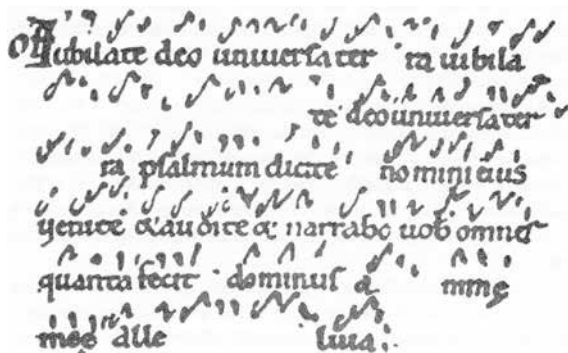 OF Iubilate deo universa ter ra iubila
te deo universa ter
ra psalmum dicite nomini eius
venite & audite & narrabo vob omnes
quanta fecit dominus a nime
mee alle luia.